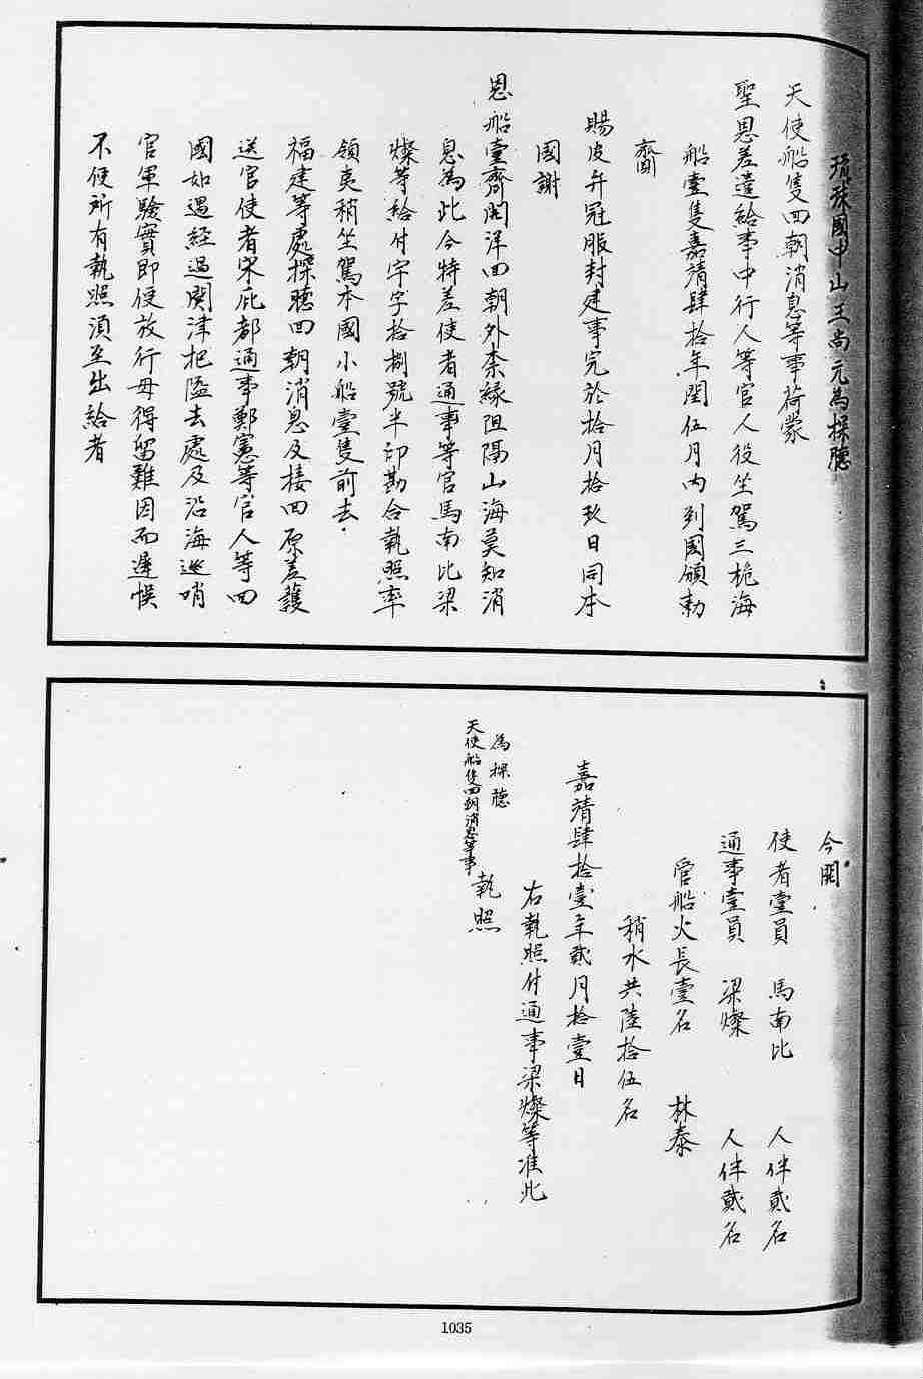 琉球國中山王尚元為探聽
天使船隻回朝消息等事荷蒙
聖恩差遣給事中行人等官人役坐駕三桅海
船壹隻嘉靖肆拾年閏伍月內到國頒勅
齎
賜皮弁冠服封建事完於拾月拾玖日同本
國謝
恩船壹齊開洋回朝外柰緣阻隔山海莫知消
息為此今特差使者通事等官馬南比梁
燦等給付宇字拾捌號半印勘合執照率
領夷稍坐駕本國小船壹隻前去
福建等處探聽回朝消息及接回原差護
送官使者宋庇都通事鄭憲等官人等回
國如遇經過関津把隘去處及沿海巡哨
官軍驗實即便放行毋得留難因而遲悞
不便所有執照須至出給者
今開
使者壹員 馬南比 人伴貳名
通事壹員 梁燦 人伴貳名
管船火長壹名 林泰
稍水共陸拾伍名
嘉靖肆拾壹年貳月拾壹日
右執照付通事梁燦等准此
為探聽
天使船隻回朝消息等事
執照
1035